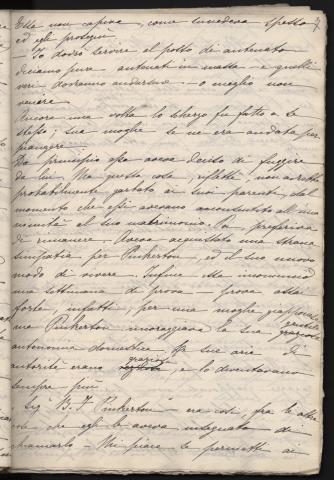 Ella non capiva, come succedeva spesso 7
ed egli proseguì:
"Io dovrò servire al posto di antenato
diciamo pure antenati in massa e quelli
veri dovranno andarsene o meglio non
venire.
Ancora una volta lo scherzo fu fatto a se
stesso; sua moglie se ne era andata per
piangere.
Da principio essa aveva deciso di fuggire
da lui. Ma questo cola, riflettè non avrebbe
probabilmente garbato ai suoi parenti, dal
momento che essi avevano acconsentito all'una
nimità al suo matrimonio. Ella preferiva
di rimanere. Aveva acquistato una strana
simpatia per Pinkerton, ed il suo nuovo
modo di vivere. Infine Ella incominciò
una settimana di prova prova assai
forte, infatti, per una moglie giapponese
ma Pinkerton incoraggiava la sua gentile graziosa
autonomia domestica. Le sue arie di
autorità erano graziose, e lo diventavano
sempre più.
"Sig. B. F. Pinkerton" era così, fra le altre
cose che egli le aveva insegnato di
chiamarlo - Mi piace se permetti ai